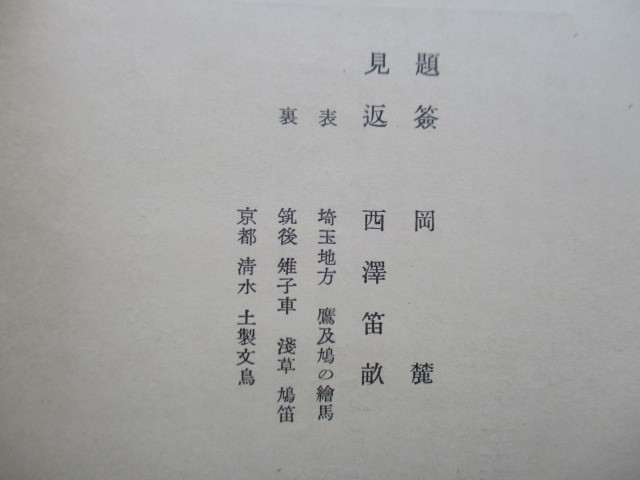 題簽 岡 麓
見返 西澤笛畝
表 埼玉地方 鷹及鳩の繪馬
裏 筑後 雉子車 淺草 鳩笛
京都 淸水 土製文鳥